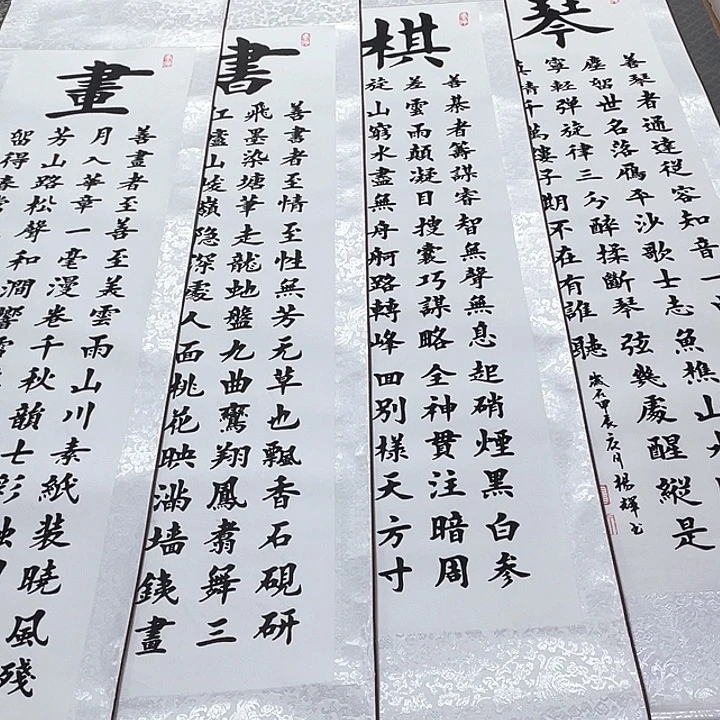 琴
善琴者通達從容知音一
塵留世名落雁平沙歌士志魚樵山水
寧輕彈旋律三分醉揉斷琴弦幾處醒縱是
真情千萬縷子期不在有誰聽
歲在甲辰 月楊輝書
棋
善棊者籌謀睿智無聲無息起硝煙黑白參
差雲雨顛凝目搜囊巧謀略全神貫注暗周
旋山窮水盡無舟舸路轉峰回別樣天方寸
書
善書者至情至性無芳无草也飄香石硯研
飛墨染塘華走龍虵盤九曲鸞翔鳳翥舞三
江盧山峻嶺隐深處人面桃花映滿墙銕畫
畫
善畫者至善至美雲雨山川素紙装曉風殘
月入華章一毫漫卷千秋韻士彩
芳山路松聲和澗響
留得春